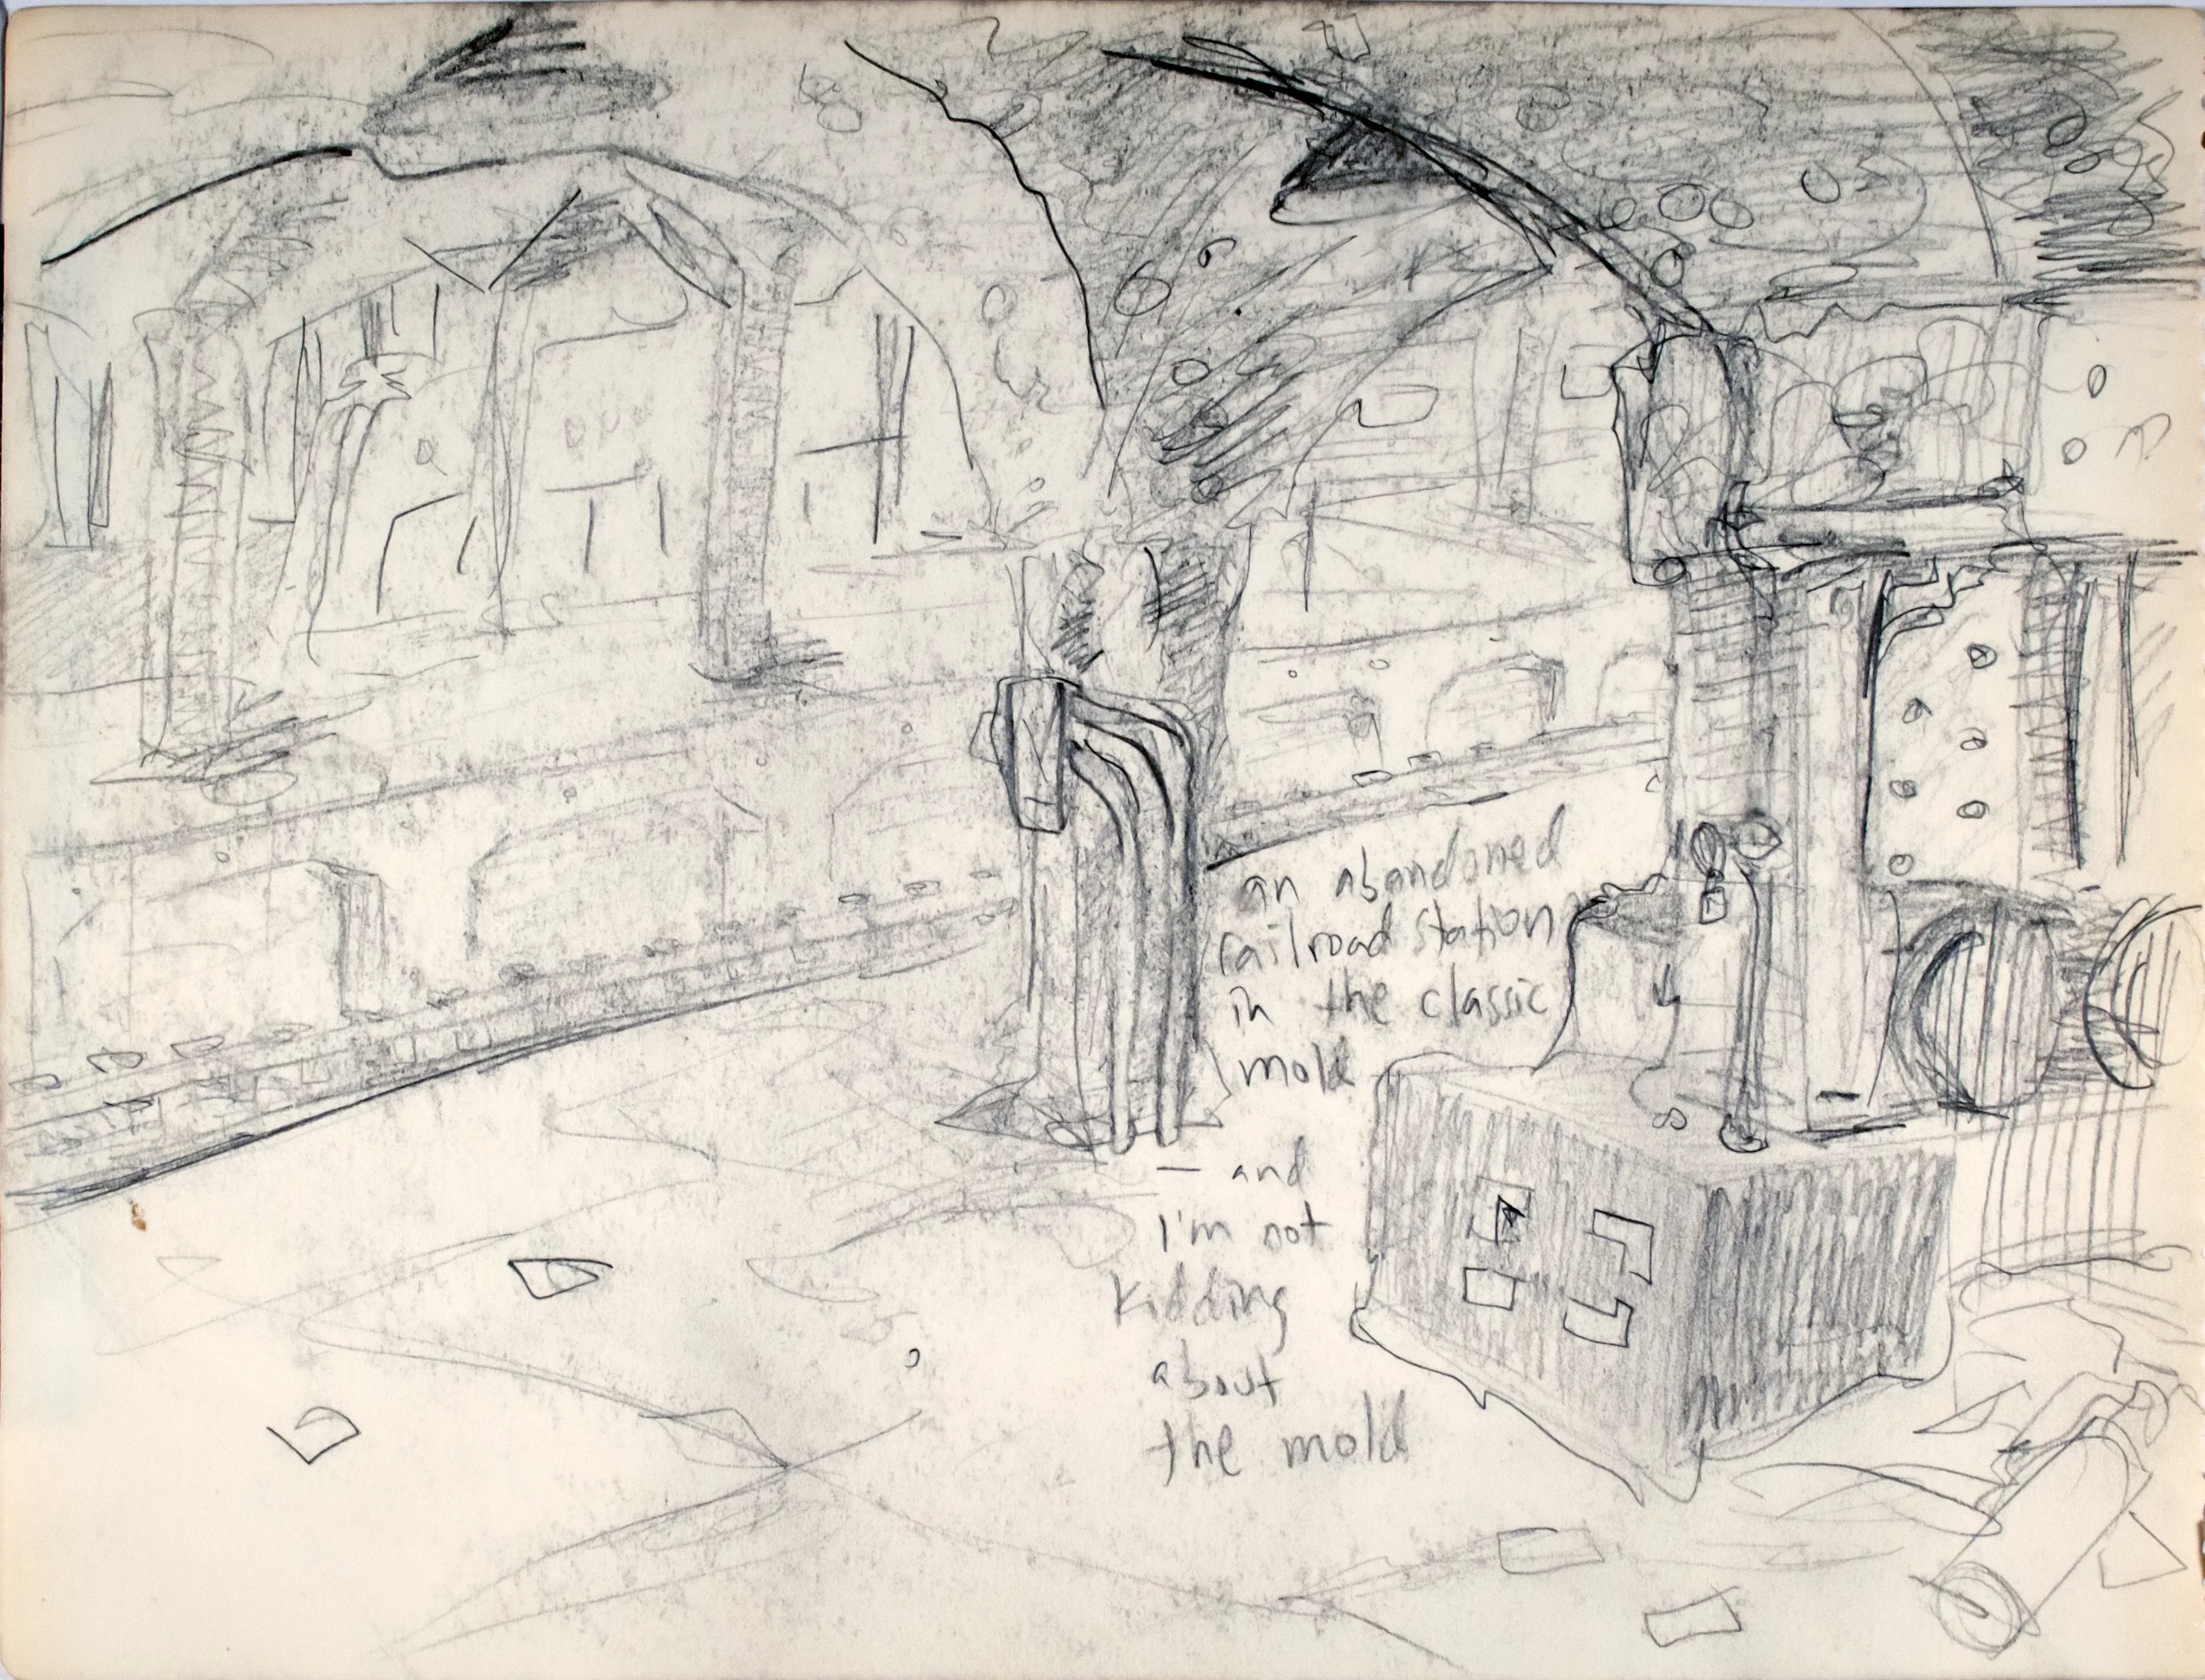 an abandoned
railroad station
in the classic
mold
— and
I'm not
kidding
about
the mold